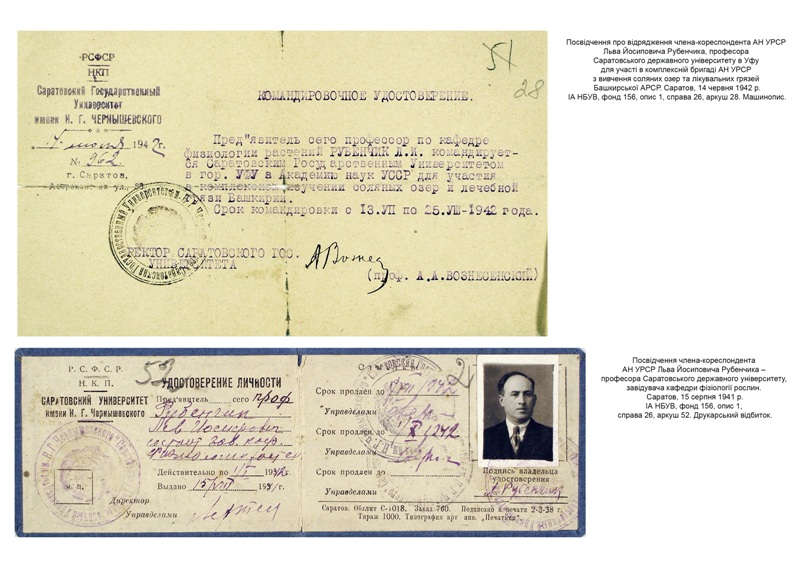 РСФСР
НКП
Саратовский Государственный
Университет
имени Н. Г. ЧЕРНЫШЕВСКОГО
1942г.
№ 962
г. Саратов,
Астраханская ул., 83
51
28
КОМАНДИРОВОЧНОЕ УДОСТОВЕРЕНИЕ.
Пред"явитель сего профессор по кафедре
физиологии растений РУБЕНЧИК Л.И. командирует-
ся Саратовским Государственным Университетом
в гор. УФУ в Академию наук УССР для участия
в комплексном изучении соляных озер и лечебной
грязи Башкирии.
Срок командировки с 13.УП по 25.УШ-1942 года.
РЕКТОР САРАТОВСКОГО ГОС.
УНИВЕРСИТЕТА
(проф. А.А.ВОЗНЕСЕНСКИЙ)
Посвідчення про відрядження члена-кореспондента АН УРСР
Льва Йосиповича Рубенчика, професора
Саратовського державного університету в Уфу
для участі в комплексній бригаді АН УРСР
з вивчення соляних озер та лікувальних грязей
Башкирської АРСР. Саратов, 14 червня 1942 р.
ІА НБУВ, фонд 156, опис 1, справа 26, аркуш 28. Машинопис.
Р. С. Ф. С. Р.
Н. К. П.
САРАТОВСКИЙ УНИВЕРСИТЕТ
имени Н. Г. Чернышевского
52
УДОСТОВЕРЕНИЕ ЛИЧНОСТИ
Пред'явитель сего проф.
Рубенчик
Лев Иосифович
состоит зав. каф.
Действительно по 1942г.
Выдано 1941г.
м. п.
Директор
Управделами
Срок продлен до 1942
Управделами
Срок продлен до 1942
Управделами
Срок продлен до
Управделами
Подпись владельца
удостоверения
Л. Рубенчик
Саратов. Обллит С-1018. Заказ 760. Подписано к печати 2-2-38 г.
Тираж 1000. Типография арт. инв. „Печатник".
Посвідчення члена-кореспондента
АН УРСР Льва Йосиповича Рубенчика –
професора Саратовського державного університету,
завідувача кафедри фізіології рослин.
Саратов, 15 серпня 1941 р.
ІА НБУВ, фонд 156, опис 1,
справа 26, аркуш 52. Друкарський відбиток.